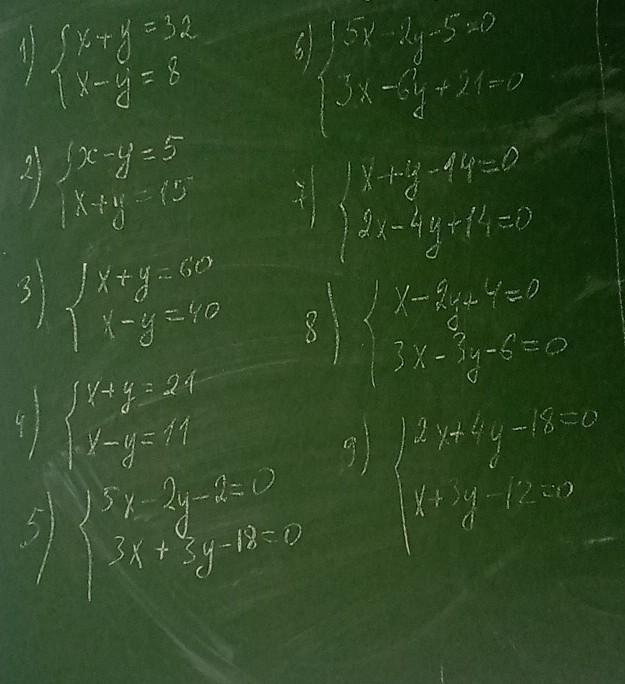 1) { x + y = 32
x − y = 8
2) { x − y = 5
x + y = 15
3) { x + y = 60
x − y = 40
4) { x + y = 21
x − y = 11
5) { 5x − 2y − 2 = 0
3x + 3y − 18 = 0
6) { 5x − 2y − 5 = 0
3x − 6y + 21 = 0
7) { x + y − 14 = 0
2x − 4y + 14 = 0
8) { x − 2y + 4 = 0
3x − 3y − 6 = 0
9) { 2x + 4y − 18 = 0
x + 3y − 12 = 0